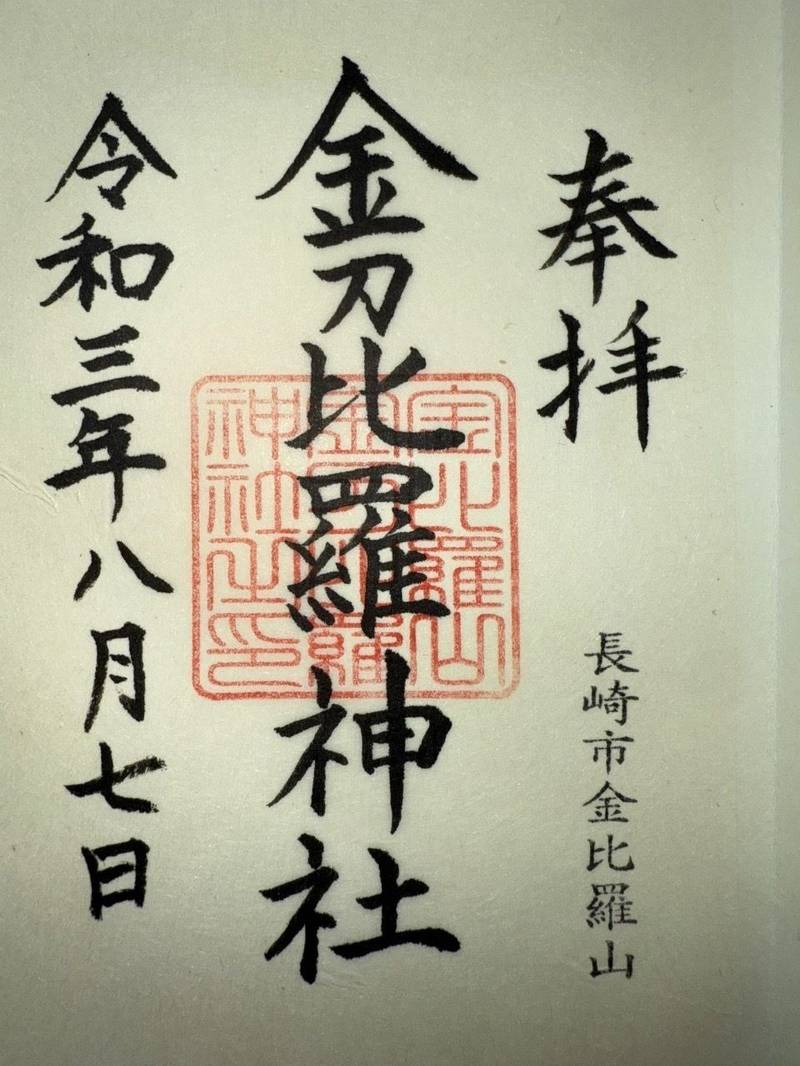 奉拝
長崎市金比羅山
金刀比羅神社
令和三年八月七日